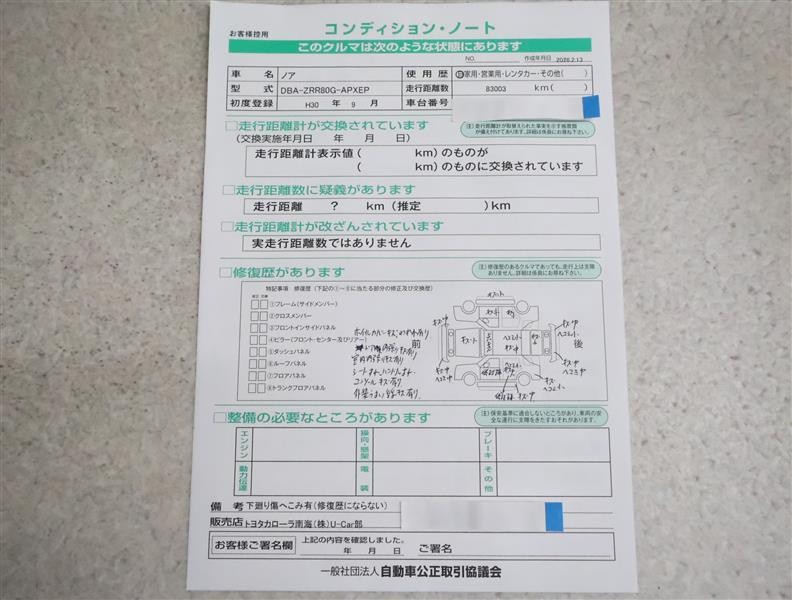 お客様控用
コンディション・ノート
このクルマは次のような状態にあります
NO. 作成年月日 2026.2.13
車名 ノア 使用歴 自家用・営業用・レンタカー・その他( )
型式 DBA-ZRR80G-APXEP 走行距離数 83003 km( )
初度登録 H30 年 9 月 車台番号
□走行距離計が交換されています
(注)走行距離計が取替えられた事実を示す帳票類が備え付けてあります。詳細は係員にお尋ね下さい。
(交換実施年月日 年 月 日)
走行距離計表示値( km)のものが
( km)のものに交換されています
□走行距離数に疑義があります
走行距離 ? km(推定 )km
□走行距離計が改ざんされています
実走行距離数ではありません
□修復歴があります
(注)修復歴のあるクルマであっても、走行上は支障ありません。詳細は係員にお尋ね下さい。
特記事項 修復歴(下記の①~⑧に当たる部分の修正及び交換歴)
修正 交換
①フレーム(サイドメンバー)
②クロスメンバー
③フロントインサイドパネル
④ピラー(フロント・センター及びリアー)
⑤ダッシュパネル
⑥ルーフパネル
⑦フロアパネル
⑧トランクフロアパネル
前
後
□整備の必要なところがあります
(注)保安基準に適合しないところがあり、車両の安全な運行に支障をきたすおそれがあります。
エンジン 操向・懸架 ブレーキ
動力伝達 電装 その他
備考 下廻り傷へこみ有(修復歴にならない)
販売店 トヨタカローラ南海(株)U-Car部
お客様ご署名欄 上記の内容を確認しました。
年 月 日 ご署名
一般社団法人 自動車公正取引協議会